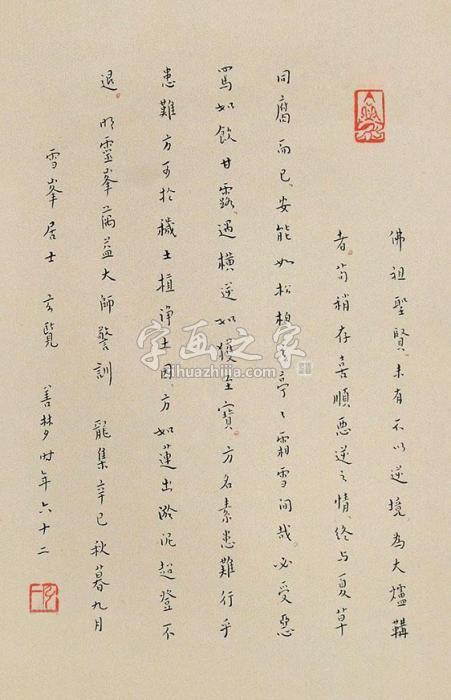 佛祖聖賢。未有不以逆境為大爐鞲
者。苟稍存喜順惡逆之情。終与夏草
同腐而已。安能如松柏之亭〻霜雪间哉。必受惡
罵如飲甘露。遇橫逆如獲至寶。方名素患難行乎
患難。方可於穢土植淨土因。方如蓮出淤泥超登不
退。 明靈峯蕅益大師警訓 龍集辛巳秋暮九月
雪峯居士 玄覽 善梦时年六十二
字画之家
zihuazhijia.com